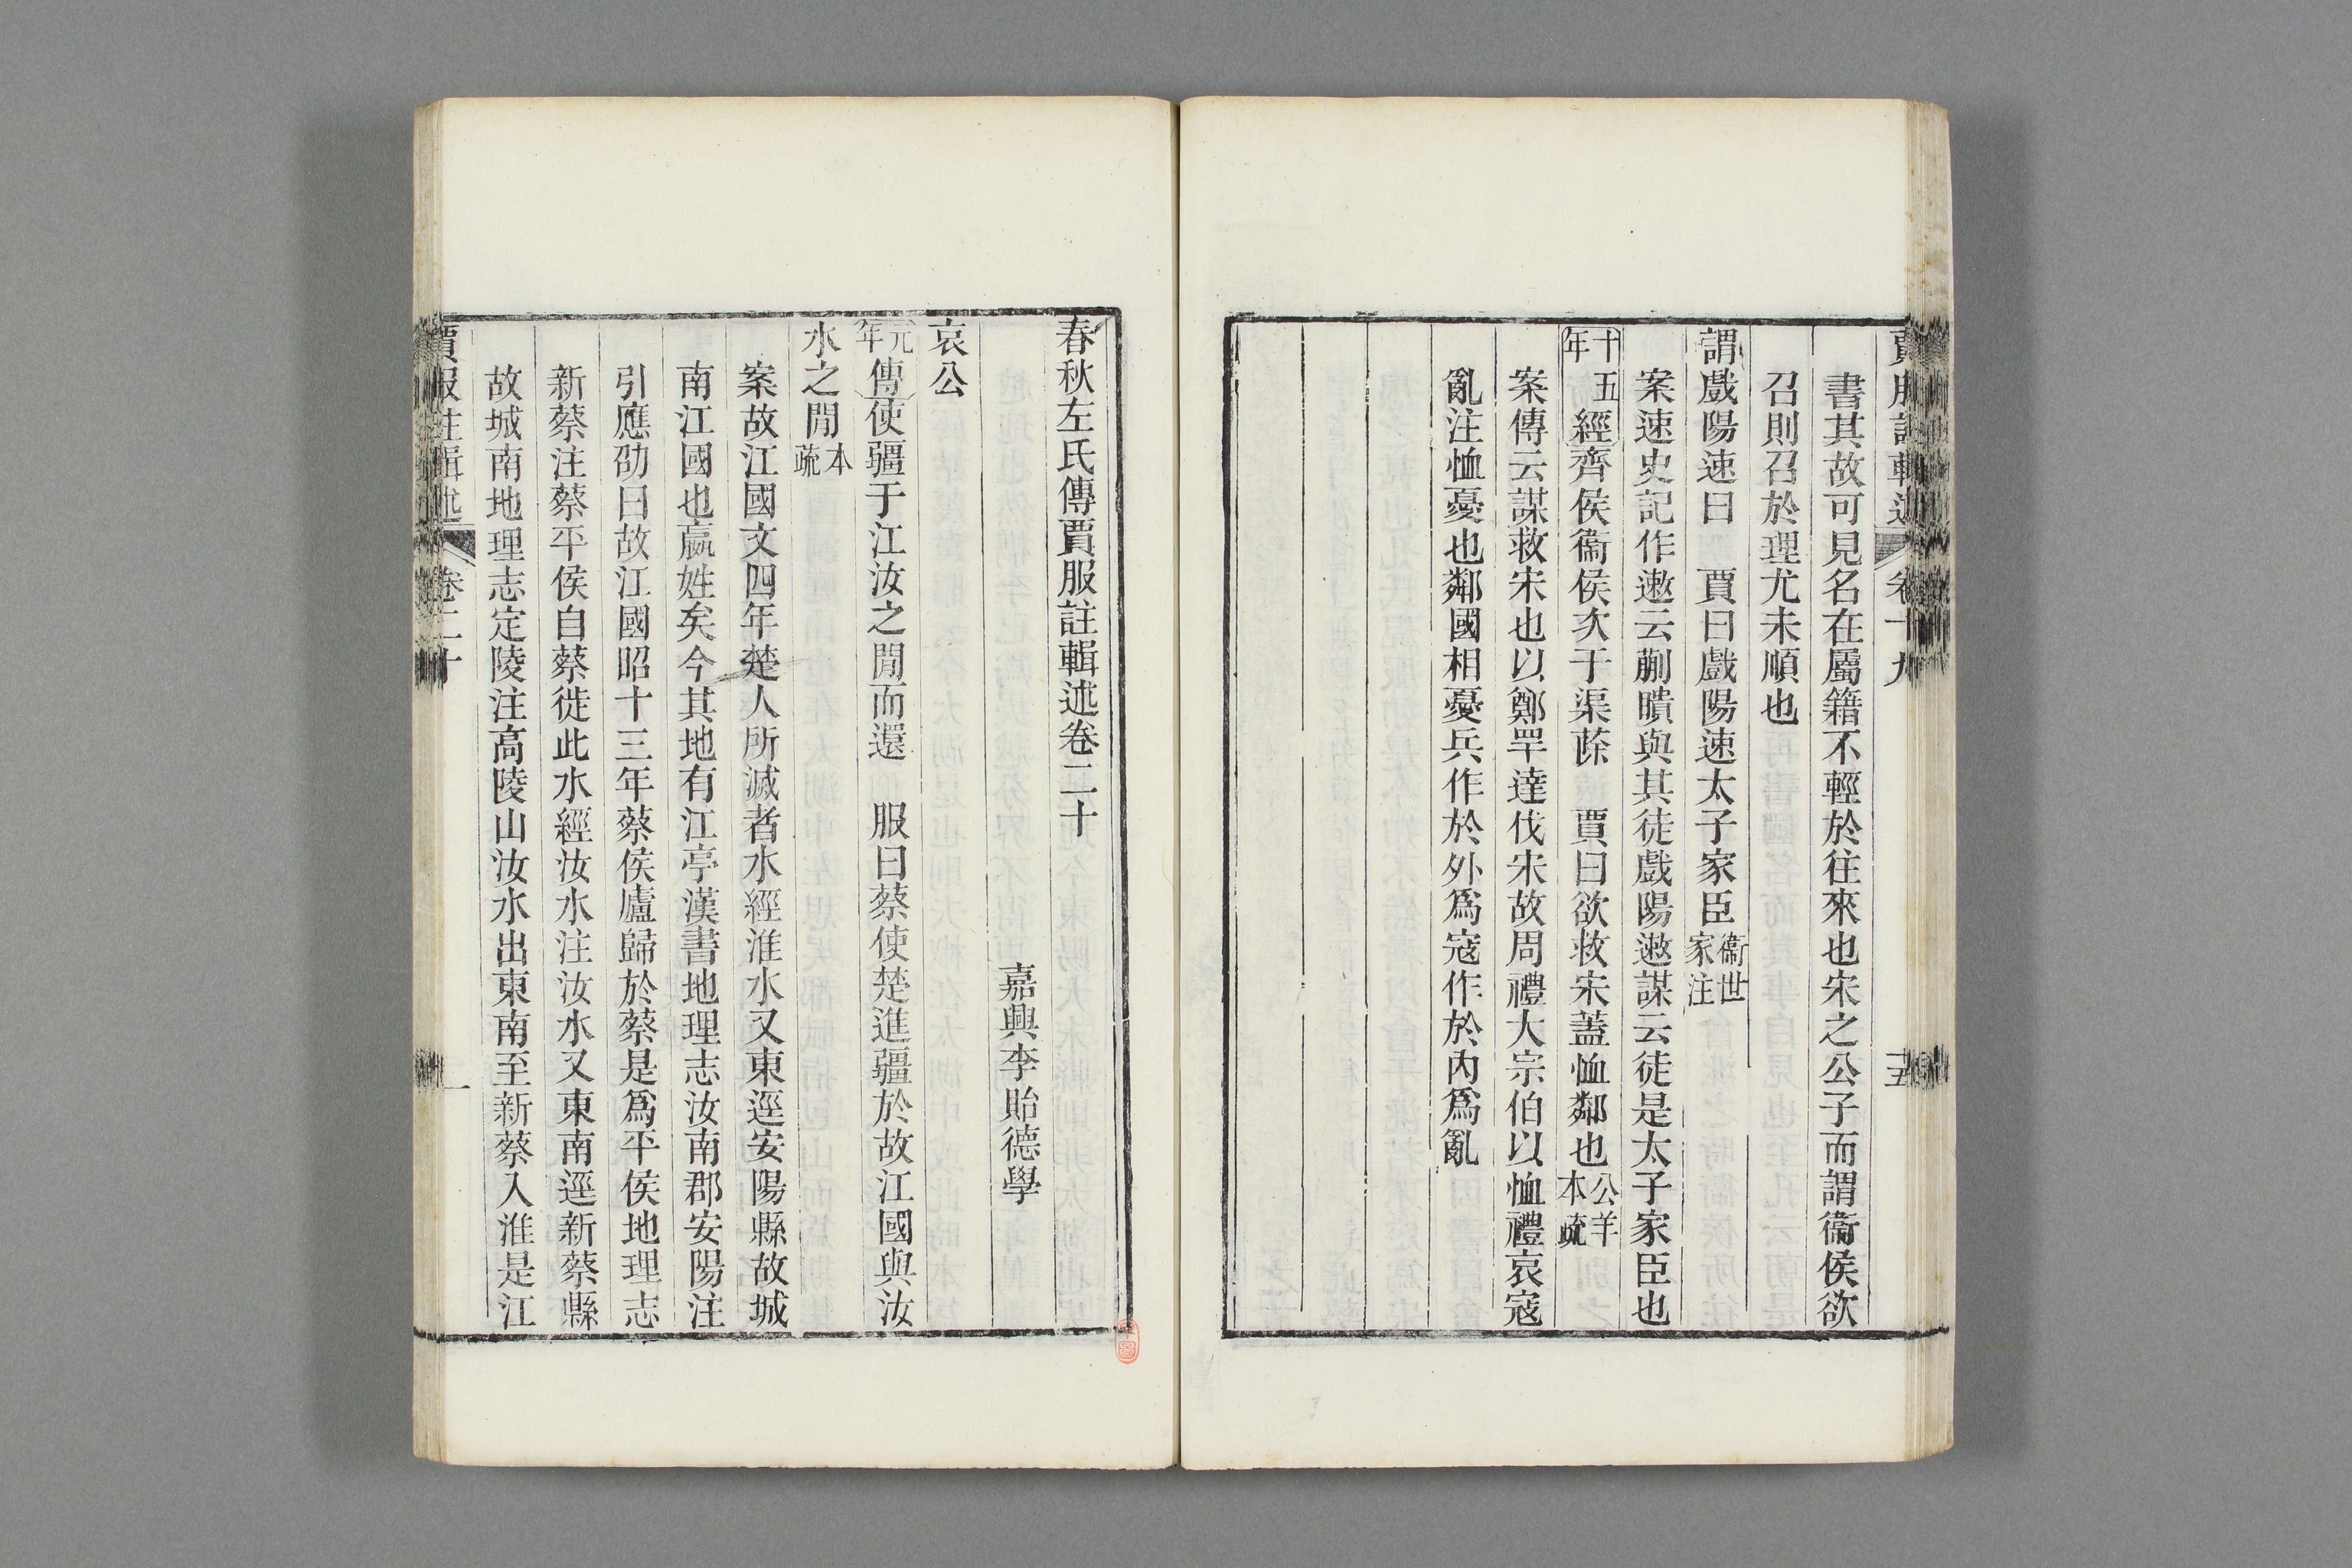 賈服註輯述 卷十九 十五
書其故可見名在屬籍不輕於往來也宋之公子而謂衞侯欲
召則召於理尤未順也
謂戲陽速曰 賈曰戲陽速太子家臣衞世家注
案速史記作遫云蒯聵與其徒戲陽遫謀云徒是太子家臣也
十五年經齊侯衞侯次于渠蒢 賈曰欲救宋蓋恤鄰也公羊本疏
案傳云謀救宋也以鄭罕達伐宋故周禮大宗伯以恤禮哀寇
亂注恤憂也鄰國相憂兵作於外爲寇作於內爲亂
春秋左氏傳賈服註輯述卷二十
嘉興李貽德學
哀公
元年傳使疆于江汝之閒而還 服曰蔡使楚進疆於故江國與汝
水之閒本疏
案故江國文四年楚人所滅者水經淮水又東逕安陽縣故城
南江國也嬴姓矣今其地有江亭漢書地理志汝南郡安陽注
引應劭曰故江國昭十三年蔡侯廬歸於蔡是爲平侯地理志
新蔡注蔡平侯自蔡徙此水經汝水注汝水又東南逕新蔡縣
故城南地理志定陵注高陵山汝水出東南至新蔡入淮是江
賈服註輯述 卷二十 一